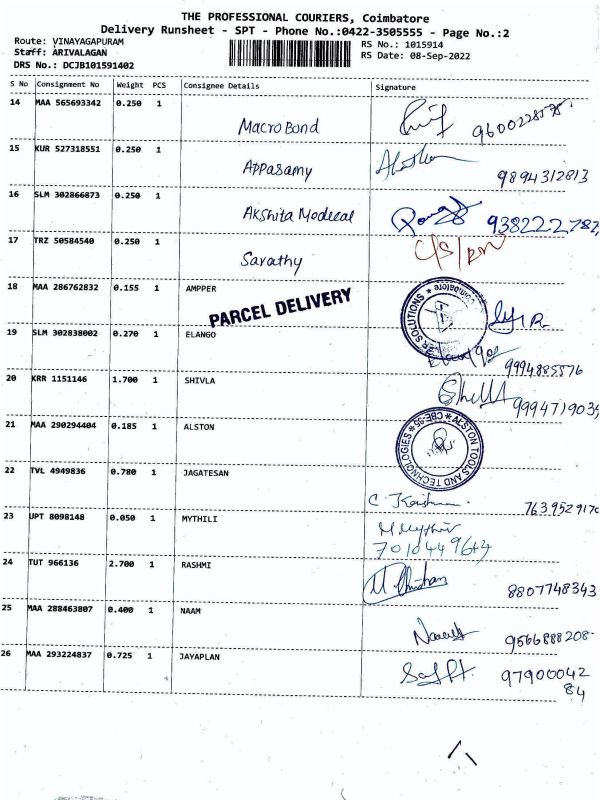 THE PROFESSIONAL COURIERS, Coimbatore
Delivery Runsheet - SPT - Phone No.:0422-3505555 - Page No.:2
Route: VINAYAGAPURAM
Staff: ARIVALAGAN
DRS No.: DCJB101591402
RS No.: 1015914
RS Date: 08-Sep-2022
S No Consignment No Weight PCS Consignee Details Signature
14 MAA 565693342 0.250 1 MacroBond 9600228575
15 KUR 527318551 0.250 1 Appasamy 9894312813
16 SLM 302866873 0.250 1 Akshita Modecal 938222782
17 TRZ 50584540 0.250 1 Sarathy
18 MAA 286762832 0.155 1 AMPPER
PARCEL DELIVERY
SOLUTIONS * Coimbatore
19 SLM 302838002 0.270 1 ELANGO 9994885576
20 KRR 1151146 1.700 1 SHIVLA 999471903
21 MAA 290294404 0.185 1 ALSTON
ALSTON TOOLS AND TECHNOLOGIES * CBE-35 *
22 TVL 4949836 0.780 1 JAGATESAN 763952917
23 UPT 8098148 0.050 1 MYTHILI
7010449643
24 TUT 966136 2.700 1 RASHMI 8807748343
25 MAA 288463807 0.400 1 NAAM 9566888208
26 MAA 293224837 0.725 1 JAYAPLAN 97900042
84